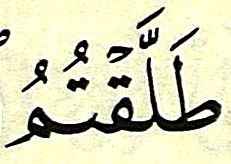 طَلَّقۡتُمُ